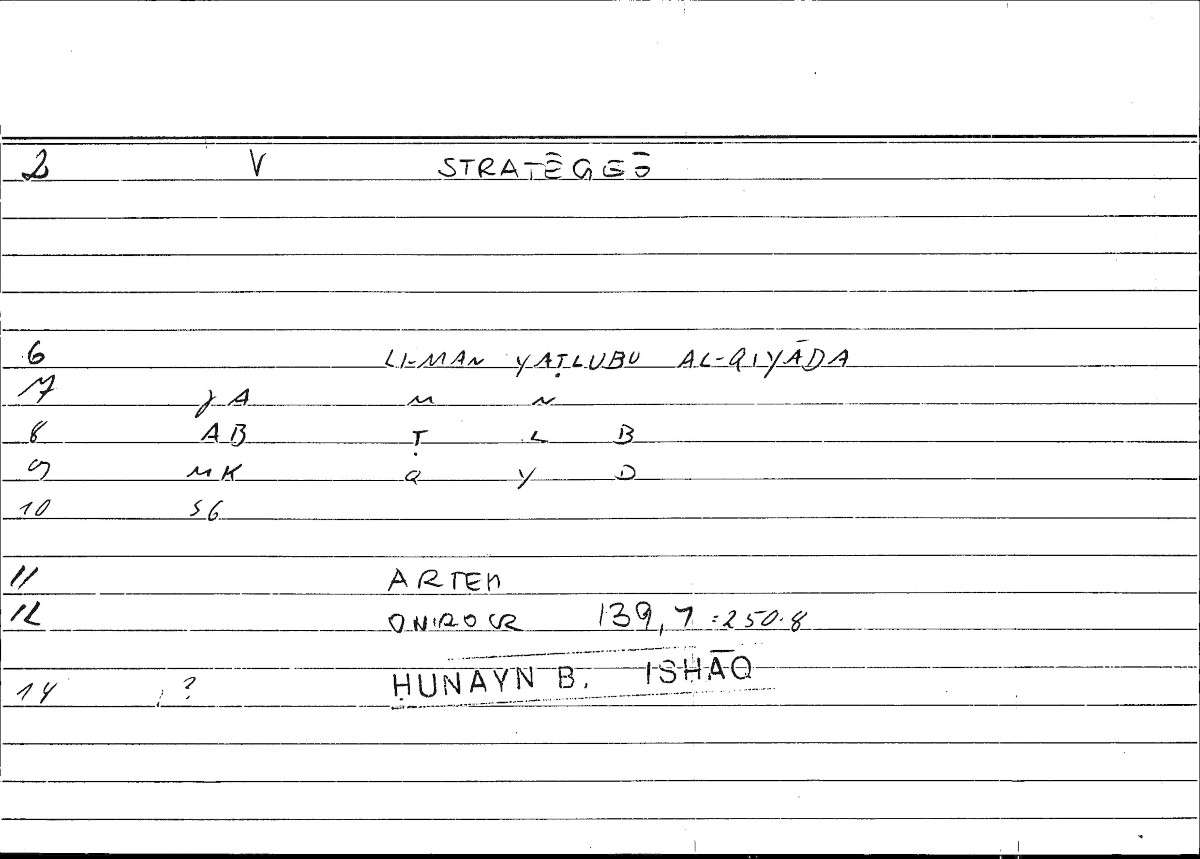 2 V STRATĒGEŌ
6 LI-MAN YAṬLUBU AL-QIYĀDA
7 γA M N
8 AB Ṭ L B
9 MK Q Y D
10 SG
11 ARTEM
12 ONIROCR 139,7 =250.8
14 ? ḤUNAYN B. ISHĀQ